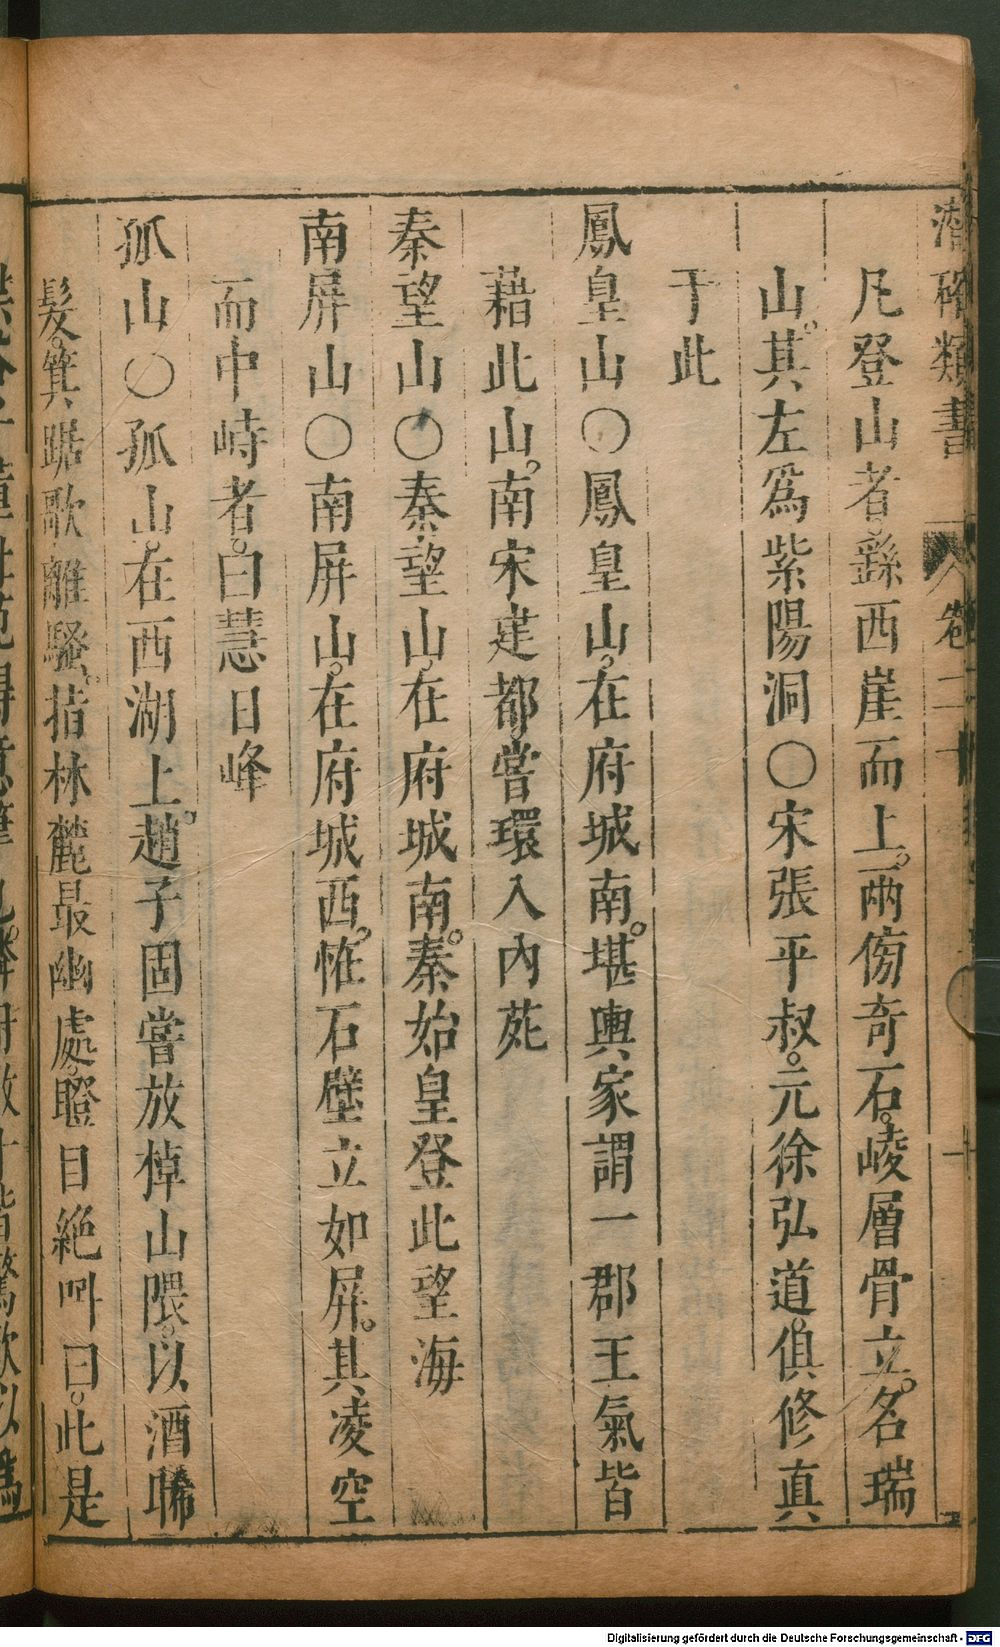 潛確類書 卷二十
凡登山者。繇西崖而上。兩傍奇石。崚層骨立。名瑞
山。其左爲紫陽洞○宋張平叔。元徐弘道。俱修真
于此
鳳皇山○鳳皇山。在府城南。堪輿家謂一郡王氣皆
藉此山。南宋建都。嘗環入內苑
秦望山○秦望山。在府城南。秦始皇登此望海
南屏山○南屏山。在府城西。惟石壁立如屏。其凌空
而中峙者。曰慧日峰
孤山○孤山。在西湖上。趙子固嘗放棹山隈。以酒晞
髮。箕踞歌離騷。指林麓最幽處。瞪目絕叫曰。此是
Digitalisierung gefördert durch die Deutsche Forschungsgemeinschaft - DFG